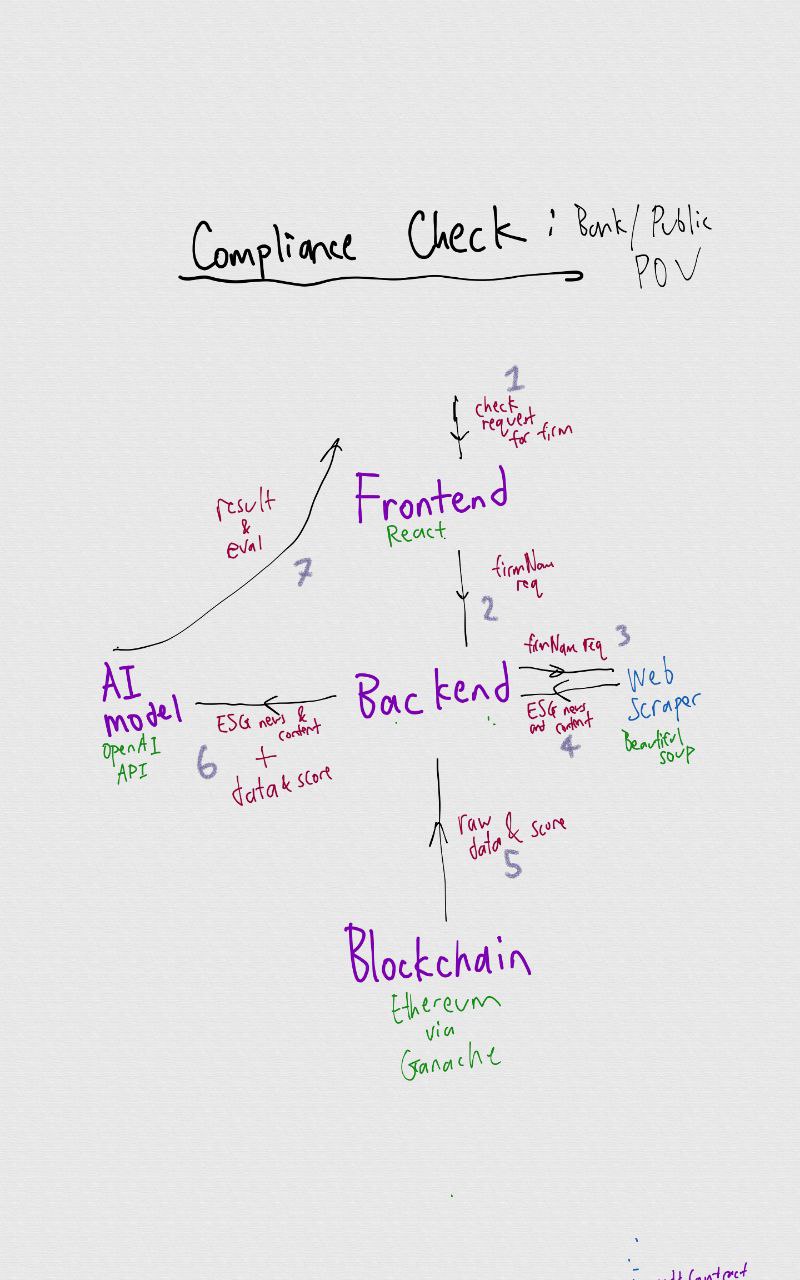 Compliance Check : Bank/ Public
POV
1
check
request
for firm
Frontend
React
result
&
eval
7
firmNam
req
2
firmNam req 3
Web
Scraper
Beautiful
soup
Backend
ESG news
and content
4
AI
model
OpenAI
API
ESG news &
content
+
data & score
6
raw
data & score
5
Blockchain
Ethereum
via
Ganache
Contract